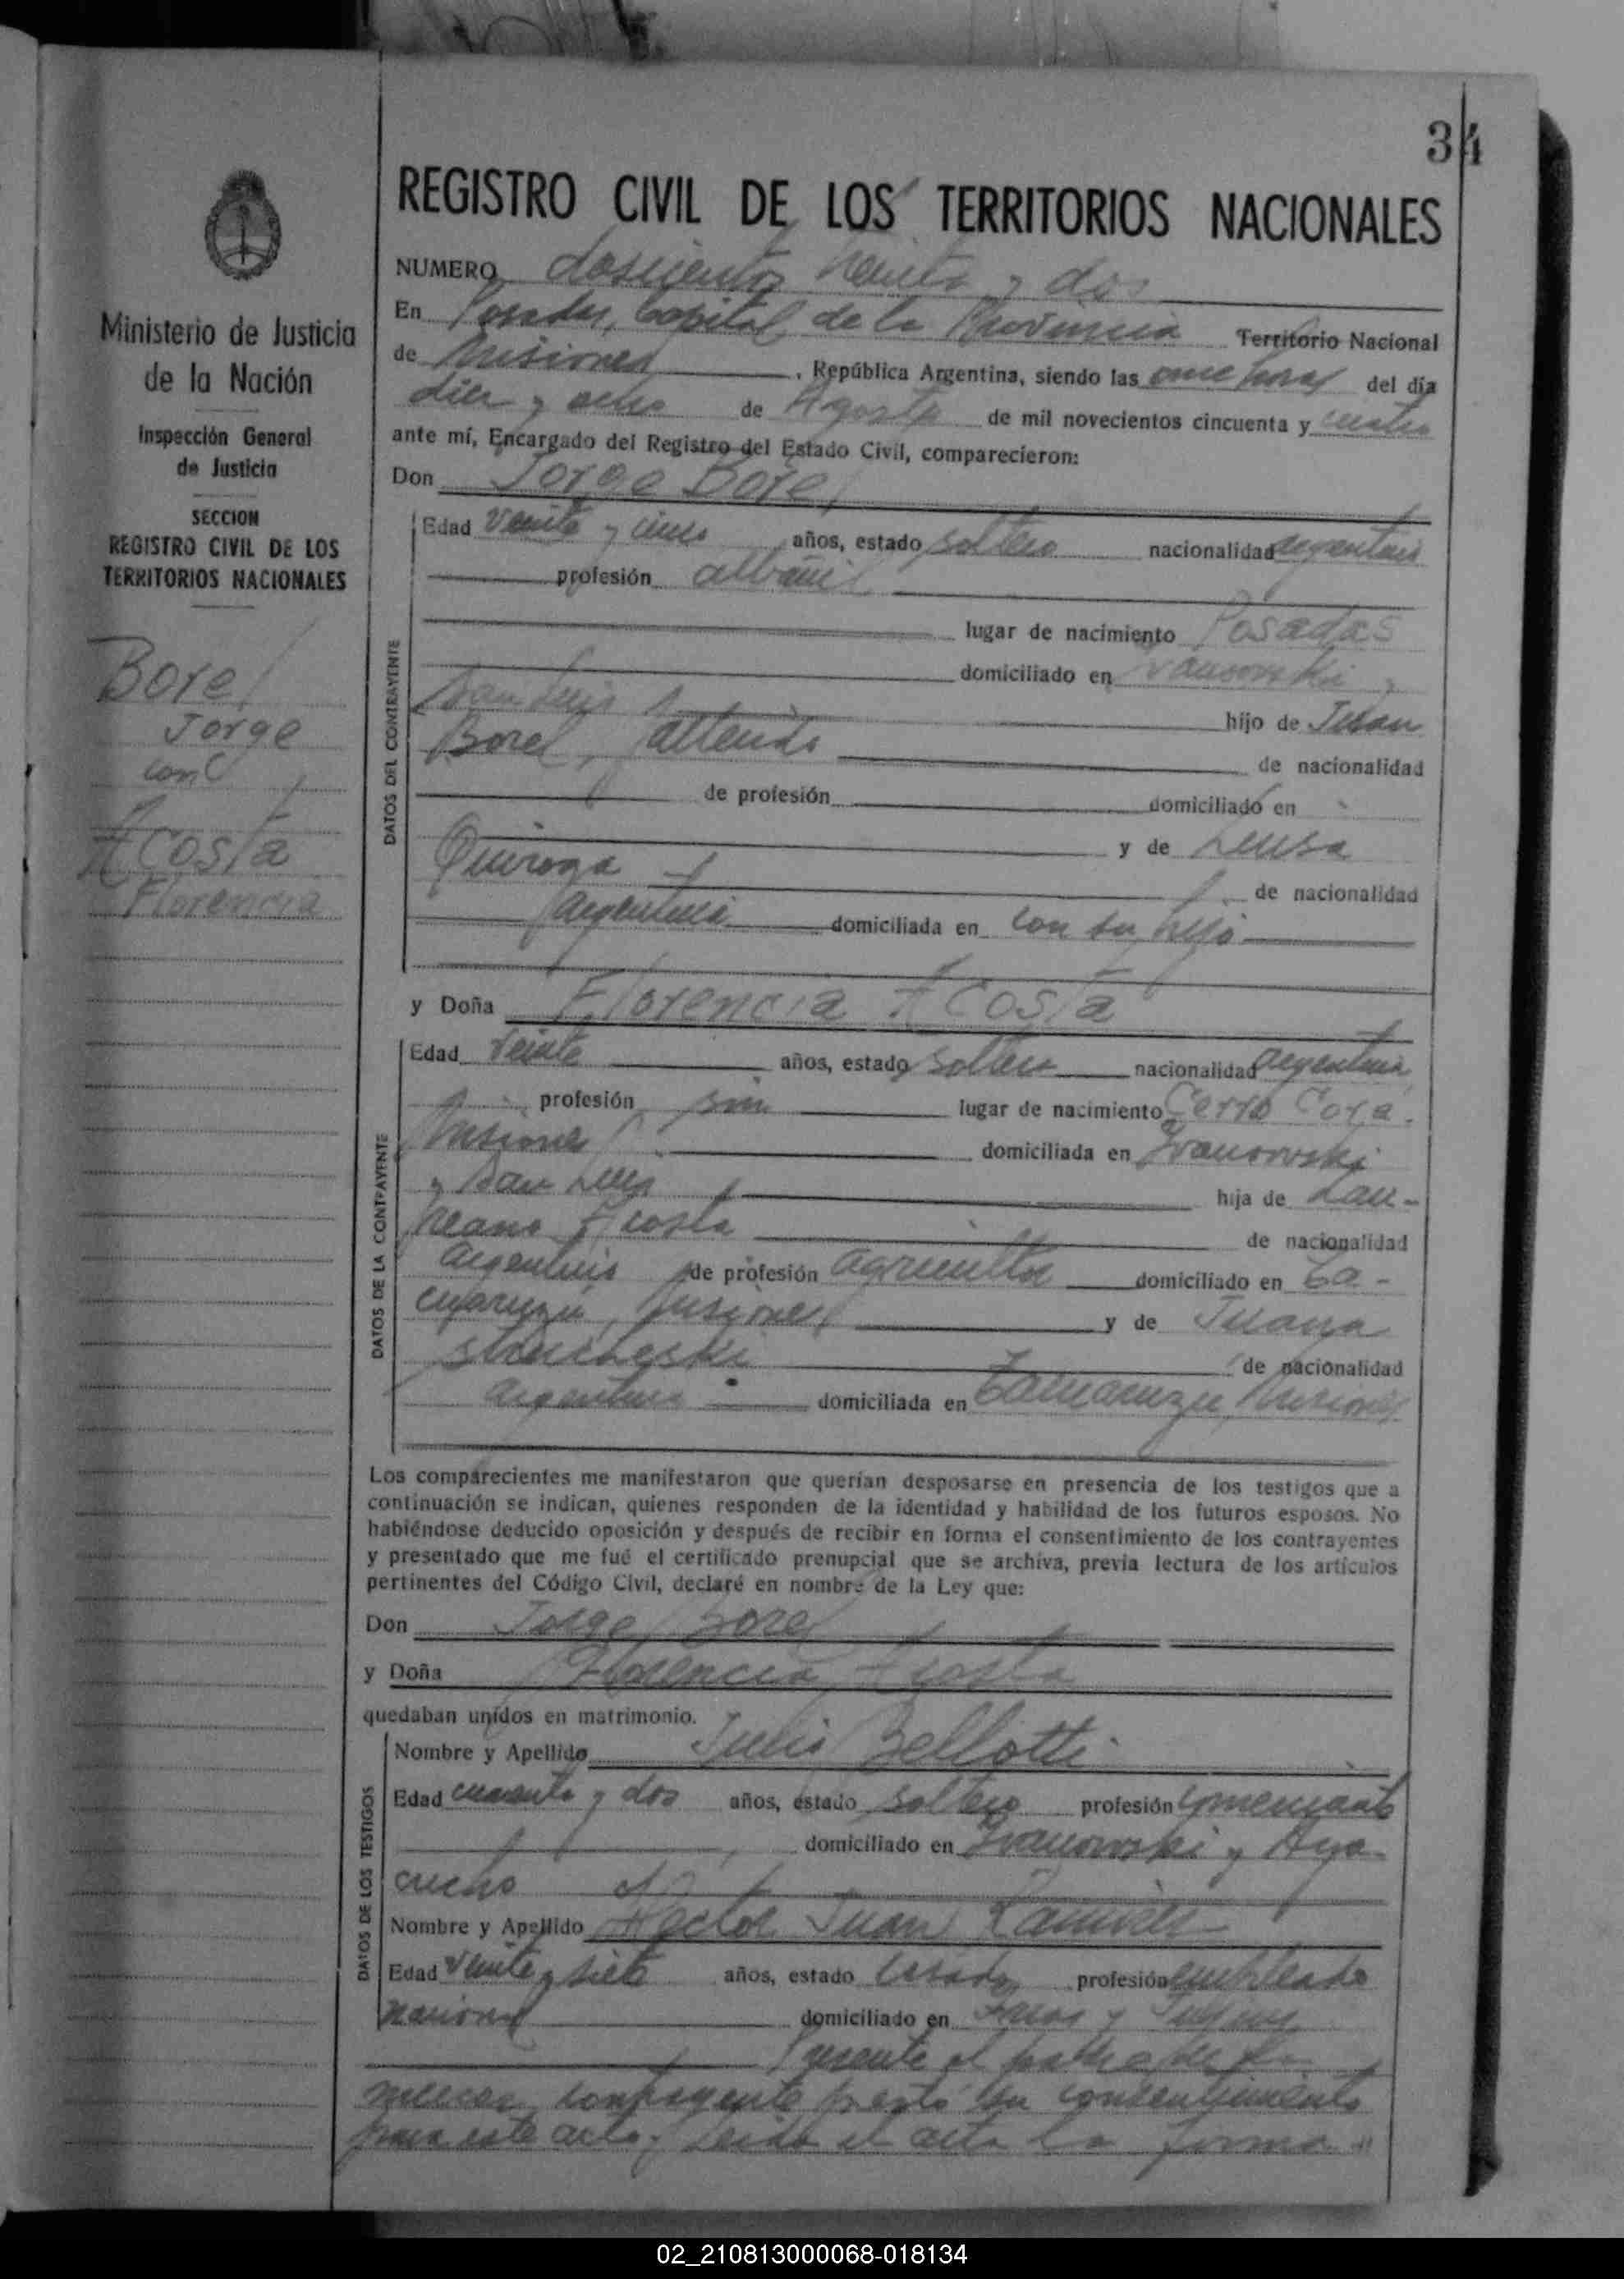 34
REGISTRO CIVIL DE LOS TERRITORIOS NACIONALES
Ministerio de Justicia
de la Nación
Inspección General
de Justicia
SECCION
REGISTRO CIVIL DE LOS
TERRITORIOS NACIONALES
Borel
Jorge
con
Acosta
Florencia
NUMERO doscientos treinta y dos
En Posadas, Capital de la Provincia Territorio Nacional
de Misiones, República Argentina, siendo las once horas del día
diez y ocho de Agosto de mil novecientos cincuenta y cuatro
ante mí, Encargado del Registro del Estado Civil, comparecieron:
Don Jorge Borel
DATOS DEL CONTRAYENTE
Edad veinte y cinco años, estado soltero nacionalidad argentino
profesión albañil
lugar de nacimiento Posadas
domiciliado en Ivanowski y
San Luis hijo de Juan
Borel, fallecido de nacionalidad
de profesión domiciliado en
y de Luisa
Quiroga de nacionalidad
argentina domiciliada en con su hijo
y Doña Florencia Acosta
DATOS DE LA CONTRAYENTE
Edad veinte años, estado soltera nacionalidad argentina
profesión sin lugar de nacimiento Cerro Corá.
Misiones domiciliada en Ivanowski
y San Luis hija de Lau-
reano Acosta de nacionalidad
argentino de profesión agricultor domiciliado en Ta-
cuaruzú, Misiones y de Juana
de nacionalidad
argentina domiciliada en Tacuaruzú, Misiones
Los comparecientes me manifestaron que querían desposarse en presencia de los testigos que a
continuación se indican, quienes responden de la identidad y habilidad de los futuros esposos. No
habiéndose deducido oposición y después de recibir en forma el consentimiento de los contrayentes
y presentado que me fué el certificado prenupcial que se archiva, previa lectura de los artículos
pertinentes del Código Civil, declaré en nombre de la Ley que:
Don Jorge Borel
y Doña Florencia Acosta
quedaban unidos en matrimonio.
DATOS DE LOS TESTIGOS
Nombre y Apellido Julio Bellotti
Edad cuarenta y dos años, estado soltero profesión comerciante
domiciliado en Ivanowski y Aya-
cucho
Nombre y Apellido Hector Juan Ramirez
Edad veinte y siete años, estado casado profesión empleado
nacional domiciliado en y
Presente el padre de la
menor contrayente prestó su consentimiento
para este acto. Leida el acta la firma"
02_210813000068-018134